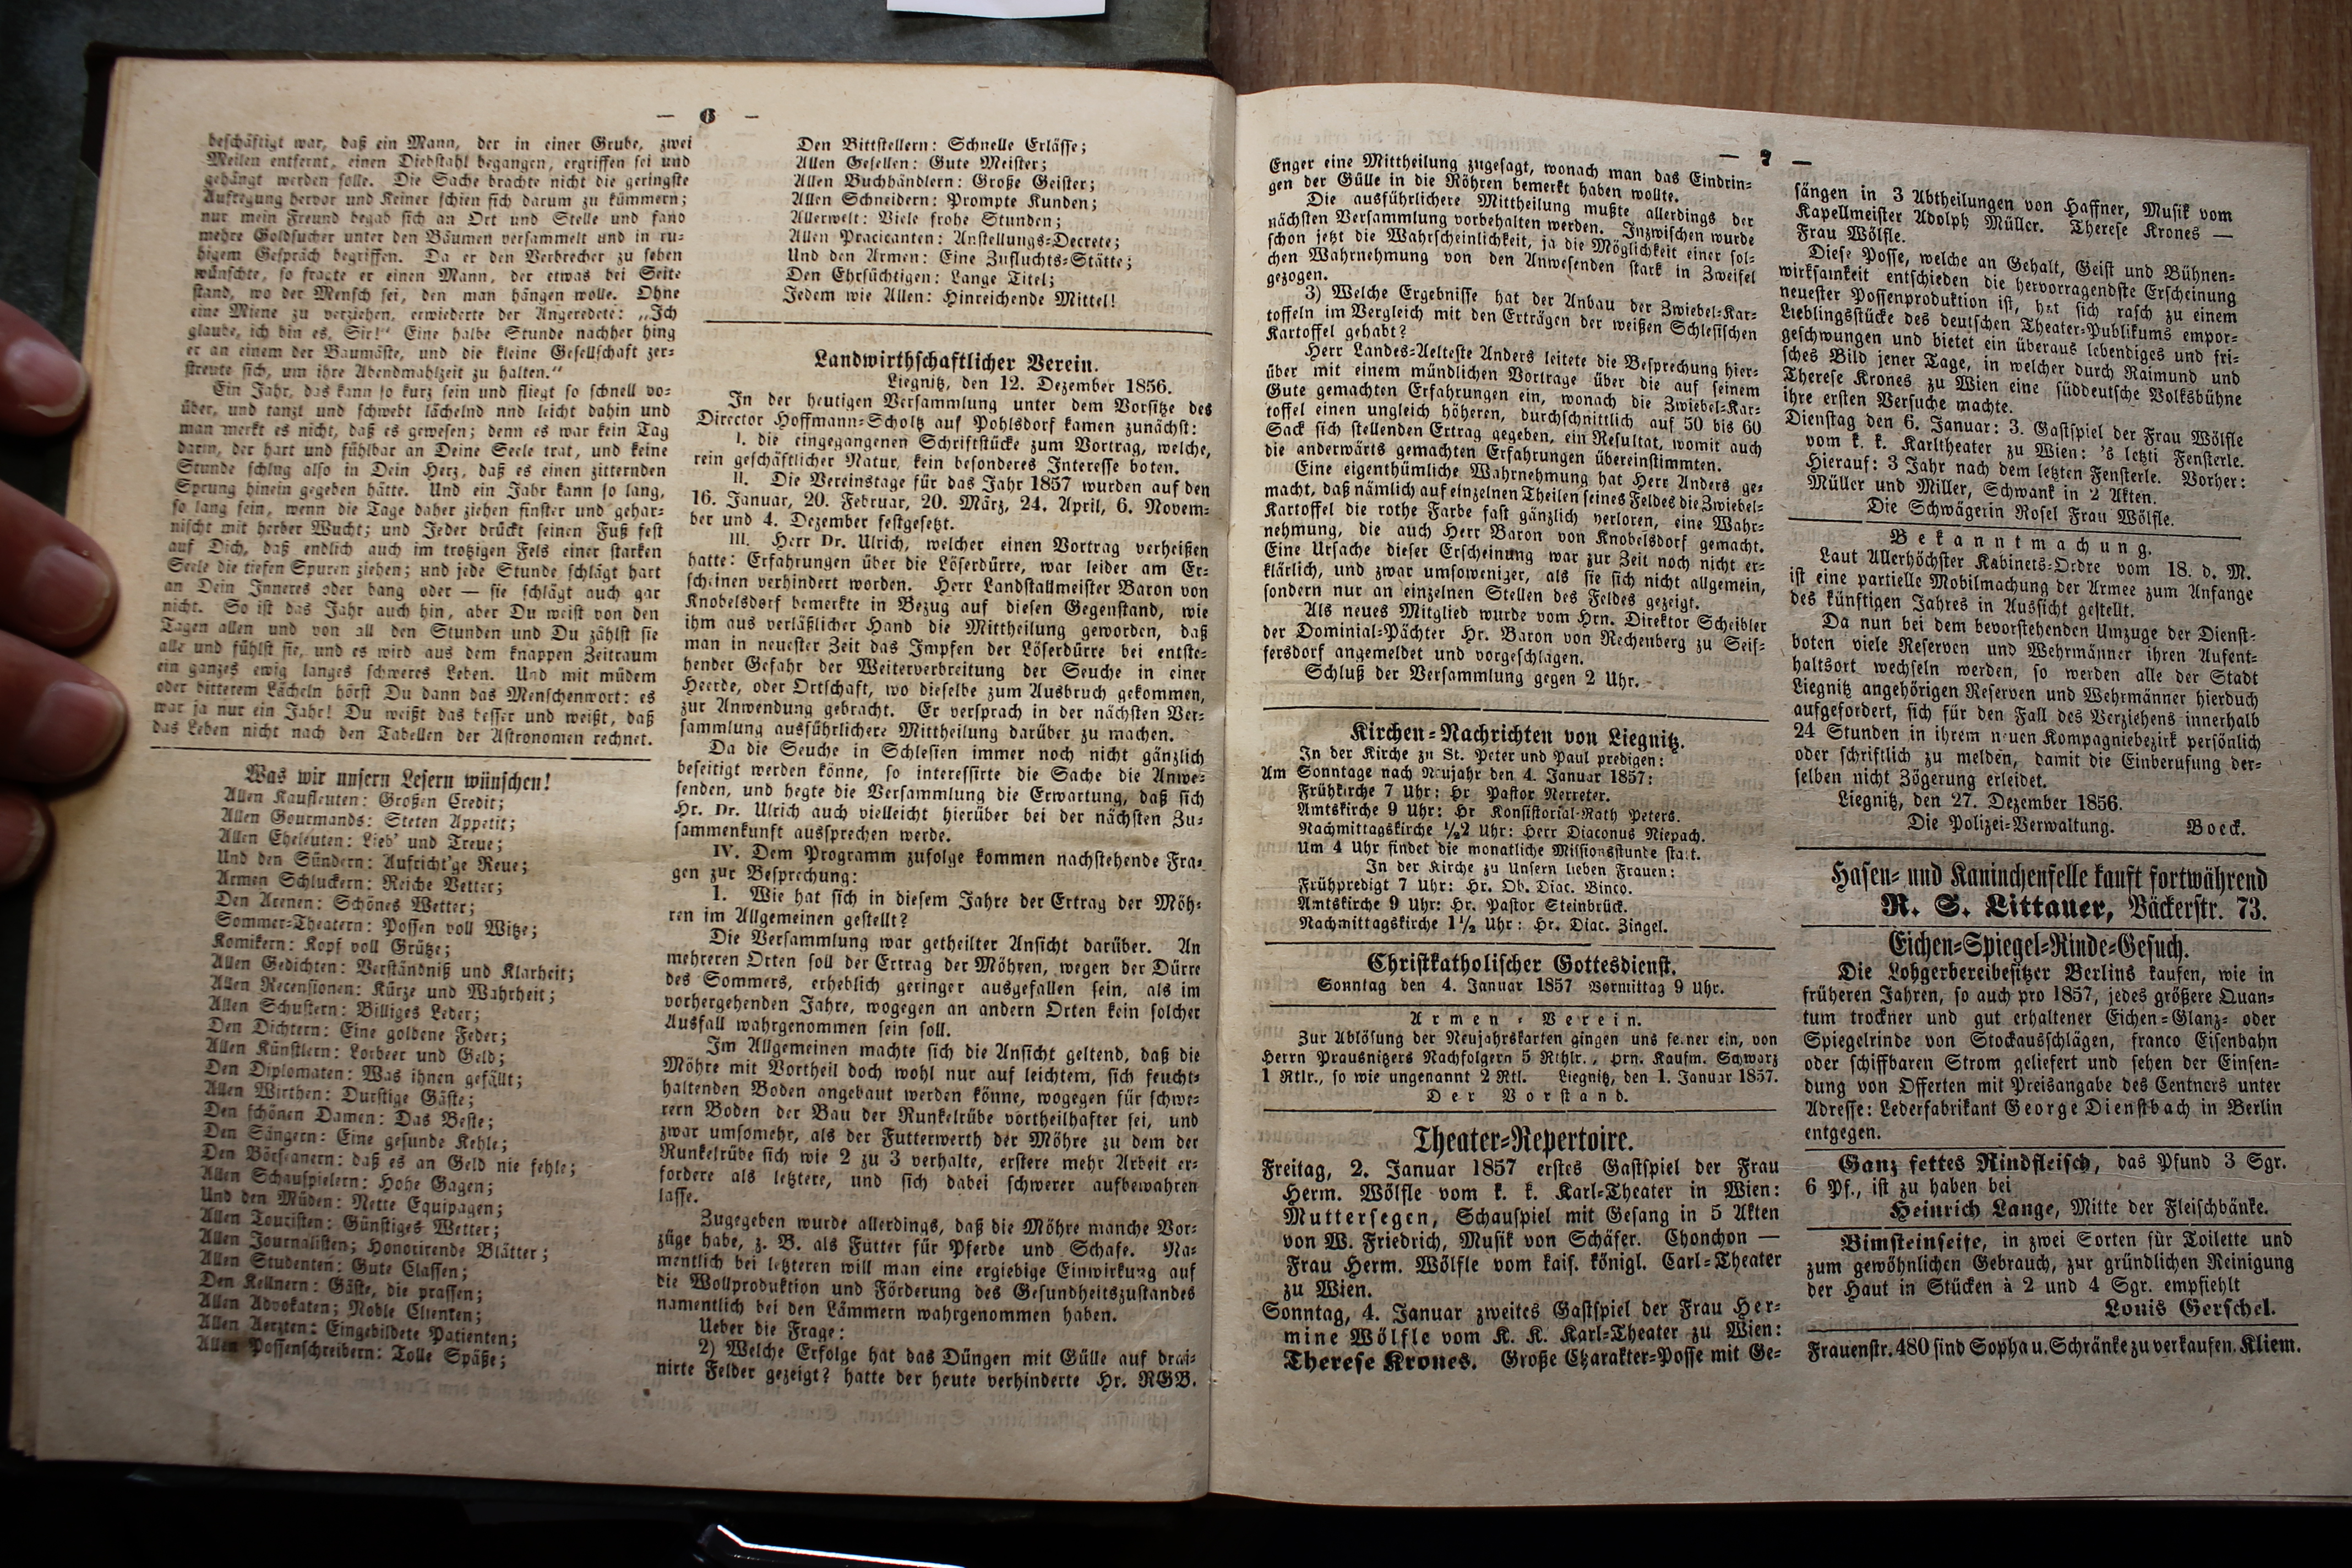 — 6 —
beschäftigt war, daß ein Mann, der in einer Grube, zwei
Meilen entfernt, einen Diebstahl begangen, ergriffen sei und
gehängt werden solle. Die Sache brachte nicht die geringste
Aufregung hervor und Keiner schien sich darum zu kümmern;
nur mein Freund begab sich an Ort und Stelle und fand
mehre Goldsucher unter den Bäumen versammelt und in ru-
higem Gespräch begriffen. Da er den Verbrecher zu sehen
wünschte, so fragte er einen Mann, der etwas bei Seite
stand, wo der Mensch sei, den man hängen wolle. Ohne
eine Miene zu verziehen, erwiederte der Angeredete: „Ich
glaube, ich bin es, Sir!“ Eine halbe Stunde nachher hing
er an einem der Baumäste, und die kleine Gesellschaft zer-
streute sich, um ihre Abendmahlzeit zu halten.“
Ein Jahr, das kann so kurz sein und fliegt so schnell vo-
über, und tanzt und schwebt lächelnd nnd leicht dahin und
man merkt es nicht, daß es gewesen; denn es war kein Tag
darin, der hart und fühlbar an Deine Seele trat, und keine
Stunde schlug also in Dein Herz, daß es einen zitternden
Sprung hinein gegeben hätte. Und ein Jahr kann so lang,
so lang sein, wenn die Tage daher ziehen finster und gehar-
nischt mit herber Wucht; und Jeder drückt seinen Fuß fest
auf Dich, daß endlich auch im trotzigen Fels einer starken
Seele die tiefen Spuren ziehen; und jede Stunde schlägt hart
an Dein Inneres oder bang oder — sie schlägt auch gar
nicht. So ist das Jahr auch hin, aber Du weist von den
Tagen allen und von all den Stunden und Du zählst sie
alle und fühlst sie, und es wird aus dem knappen Zeitraum
ein ganzes ewig langes schweres Leben. Und mit müdem
oder bitterem Lächeln hörst Du dann das Menschenwort: es
war ja nur ein Jahr! Du weißt das besser und weißt, daß
das Leben nicht nach den Tabellen der Astronomen rechnet.
Was wir unsern Lesern wünschen!
Allen Kaufleuten: Großen Credit;
Allen Gourmands: Steten Appetit;
Allen Eheleuten: Lieb' und Treue;
Und den Sündern: Aufricht'ge Reue;
Armen Schluckern: Reiche Vetter;
Den Arenen: Schönes Wetter;
Sommer-Theatern: Possen voll Witze;
Komikern: Kopf voll Grütze;
Allen Gedichten: Verständniß und Klarheit;
Allen Recensionen: Kürze und Wahrheit;
Allen Schustern: Billiges Leder;
Den Dichtern: Eine goldene Feder;
Allen Künstlern: Lorbeer und Geld;
Den Diplomaten: Was ihnen gefällt;
Allen Wirthen: Durstige Gäste;
Den schönen Damen: Das Beste;
Den Sängern: Eine gesunde Kehle;
Den Börseanern: daß es an Geld nie fehle;
Allen Schauspielern: Hohe Gagen;
Und den Müden: Nette Equipagen;
Allen Touristen: Günstiges Wetter;
Allen Journalisten; Honorirende Blätter;
Allen Studenten: Gute Classen;
Den Kellnern: Gäste, die prassen;
Allen Advokaten; Noble Clienten;
Allen Aerzten: Eingebildete Patienten;
Allen Possenschreibern: Tolle Späße;
Den Bittstellern: Schnelle Erlässe;
Allen Gesellen: Gute Meister;
Allen Buchhändlern: Große Geister;
Allen Schneidern: Prompte Kunden;
Allerwelt: Viele frohe Stunden;
Allen Pracicanten: Anstellungs-Decrete;
Und den Armen: Eine Zufluchts-Stätte;
Den Ehrsüchtigen: Lange Titel;
Jedem wie Allen: Hinreichende Mittel!
Landwirthschaftlicher Verein.
Liegnitz, den 12. Dezember 1856.
In der heutigen Versammlung unter dem Vorsitze des
Director Hoffmann-Scholtz auf Pohlsdorf kamen zunächst:
I. die eingegangenen Schriftstücke zum Vortrag, welche,
rein geschäftlicher Natur, kein besonderes Interesse boten.
II. Die Vereinstage für das Jahr 1857 wurden auf den
16. Januar, 20. Februar, 20. März, 24. April, 6. Novem-
ber und 4. Dezember festgesetzt.
III. Herr Dr. Ulrich, welcher einen Vortrag verheißen
hatte: Erfahrungen über die Löserdürre, war leider am Er-
scheinen verhindert worden. Herr Landstallmeister Baron von
Knobelsdorf bemerkte in Bezug auf diesen Gegenstand, wie
ihm aus verläßlicher Hand die Mittheilung geworden, daß
man in neuester Zeit das Impfen der Löserdürre bei entste-
hender Gefahr der Weiterverbreitung der Seuche in einer
Heerde, oder Ortschaft, wo dieselbe zum Ausbruch gekommen,
zur Anwendung gebracht. Er versprach in der nächsten Ver-
sammlung ausführlichere Mittheilung darüber zu machen.
Da die Seuche in Schlesien immer noch nicht gänzlich
beseitigt werden könne, so interessirte die Sache die Anwe-
senden, und hegte die Versammlung die Erwartung, daß sich
Hr. Dr. Ulrich auch vielleicht hierüber bei der nächsten Zu-
sammenkunft aussprechen werde.
IV. Dem Programm zufolge kommen nachstehende Fra-
gen zur Besprechung:
1. Wie hat sich in diesem Jahre der Ertrag der Möh-
ren im Allgemeinen gestellt?
Die Versammlung war getheilter Ansicht darüber. An
mehreren Orten soll der Ertrag der Möhren, wegen der Dürre
des Sommers, erheblich geringer ausgefallen sein, als im
vorhergehenden Jahre, wogegen an andern Orten kein solcher
Ausfall wahrgenommen sein soll.
Im Allgemeinen machte sich die Ansicht geltend, daß die
Möhre mit Vortheil doch wohl nur auf leichtem, sich feucht-
haltenden Boden angebaut werden könne, wogegen für schwe-
rern Boden der Bau der Runkelrübe vortheilhafter sei, und
zwar umsomehr, als der Futterwerth der Möhre zu dem der
Runkelrübe sich wie 2 zu 3 verhalte, erstere mehr Arbeit er-
fordere als letztere, und sich dabei schwerer aufbewahren
lasse.
Zugegeben wurde allerdings, daß die Möhre manche Vor-
züge habe, z. B. als Futter für Pferde und Schafe. Na-
mentlich bei letzteren will man eine ergiebige Einwirkung auf
die Wollproduktion und Förderung des Gesundheitszustandes
namentlich bei den Lämmern wahrgenommen haben.
Ueber die Frage:
2) Welche Erfolge hat das Düngen mit Gülle auf drai-
nirte Felder gezeigt? hatte der heute verhinderte Hr. RGB.
— 7 —
Enger eine Mittheilung zugesagt, wonach man das Eindrin-
gen der Gülle in die Röhren bemerkt haben wollte.
Die ausführlichere Mittheilung mußte allerdings der
nächsten Versammlung vorbehalten werden. Inzwischen wurde
schon jetzt die Wahrscheinlichkeit, ja die Möglichkeit einer sol-
chen Wahrnehmung von den Anwesenden stark in Zweifel
gezogen.
3) Welche Ergebnisse hat der Anbau der Zwiebel-Kar-
toffeln im Vergleich mit den Erträgen der weißen Schlesischen
Kartoffel gehabt?
Herr Landes-Aelteste Anders leitete die Besprechung hier-
über mit einem mündlichen Vortrage über die auf seinem
Gute gemachten Erfahrungen ein, wonach die Zwiebel-Kar-
toffel einen ungleich höheren, durchschnittlich auf 50 bis 60
Sack sich stellenden Ertrag gegeben, ein Resultat, womit auch
die anderwärts gemachten Erfahrungen übereinstimmten.
Eine eigenthümliche Wahrnehmung hat Herr Anders ge-
macht, daß nämlich auf einzelnen Theilen seines Feldes die Zwiebel-
Kartoffel die rothe Farbe fast gänzlich verloren, eine Wahr-
nehmung, die auch Herr Baron von Knobelsdorf gemacht.
Eine Ursache dieser Erscheinung war zur Zeit noch nicht er-
klärlich, und zwar umsoweniger, als sie sich nicht allgemein,
sondern nur an einzelnen Stellen des Feldes gezeigt.
Als neues Mitglied wurde vom Hrn. Direktor Scheibler
der Dominial-Pächter Hr. Baron von Rechenberg zu Seif-
fersdorf angemeldet und vorgeschlagen.
Schluß der Versammlung gegen 2 Uhr.
Kirchen-Nachrichten von Liegnitz.
In der Kirche zu St. Peter und Paul predigen:
Am Sonntage nach Neujahr den 4. Januar 1857:
Frühkirche 7 Uhr: Hr Pastor Nerreter.
Amtskirche 9 Uhr: Hr Konsistorial-Rath Peters.
Nachmittagskirche ½2 Uhr: Herr Diaconus Niepach.
Um 4 Uhr findet die monatliche Missionsstunde statt.
In der Kirche zu Unsern lieben Frauen:
Frühpredigt 7 Uhr: Hr. Ob. Diac. Binco.
Amtskirche 9 Uhr: Hr. Pastor Steinbrück.
Nachmittagskirche 1½ Uhr: Hr. Diac. Zingel.
Christkatholischer Gottesdienst.
Sonntag den 4. Januar 1857 Vormittag 9 Uhr.
Armen-Verein.
Zur Ablösung der Neujahrskarten gingen uns ferner ein, von
Herrn Prausnitzers Nachfolgern 5 Rthlr., Hrn. Kaufm. Schwarz
1 Rtlr., so wie ungenannt 2 Rtl. Liegnitz, den 1. Januar 1857.
Der Vorstand.
Theater-Repertoire.
Freitag, 2. Januar 1857 erstes Gastspiel der Frau
Herm. Wölfle vom k. k. Karl-Theater in Wien:
Muttersegen, Schauspiel mit Gesang in 5 Akten
von W. Friedrich, Musik von Schäfer. Chonchon —
Frau Herm. Wölfle vom kais. königl. Carl-Theater
zu Wien.
Sonntag, 4. Januar zweites Gastspiel der Frau Her-
mine Wölfle vom K. K. Karl-Theater zu Wien:
Therese Krones. Große Charakter-Posse mit Ge-
sängen in 3 Abtheilungen von Haffner, Musik vom
Kapellmeister Adolph Müller. Therese Krones —
Frau Wölfle.
Diese Posse, welche an Gehalt, Geist und Bühnen-
wirksamkeit entschieden die hervorragendste Erscheinung
neuester Possenproduktion ist, hat sich rasch zu einem
Lieblingsstücke des deutschen Theater-Publikums empor-
geschwungen und bietet ein überaus lebendiges und fri-
sches Bild jener Tage, in welcher durch Raimund und
Therese Krones zu Wien eine süddeutsche Volksbühne
ihre ersten Versuche machte.
Dienstag den 6. Januar: 3. Gastspiel der Frau Wölfle
vom k. k. Karltheater zu Wien: 's letzti Fensterle.
Hierauf: 3 Jahr nach dem letzten Fensterle. Vorher:
Müller und Miller, Schwank in 2 Akten.
Die Schwägerin Rosel Frau Wölfle.
Bekanntmachung.
Laut Allerhöchster Kabinets-Ordre vom 18. d. M.
ist eine partielle Mobilmachung der Armee zum Anfange
des künftigen Jahres in Aussicht gestellt.
Da nun bei dem bevorstehenden Umzuge der Dienst-
boten viele Reserven und Wehrmänner ihren Aufent-
haltsort wechseln werden, so werden alle der Stadt
Liegnitz angehörigen Reserven und Wehrmänner hierduch
aufgefordert, sich für den Fall des Verziehens innerhalb
24 Stunden in ihrem neuen Kompagniebezirk persönlich
oder schriftlich zu melden, damit die Einberufung der-
selben nicht Zögerung erleidet.
Liegnitz, den 27. Dezember 1856.
Die Polizei-Verwaltung. Boeck.
Hasen- und Kaninchenfelle kauft fortwährend
R. S. Littauer, Bäckerstr. 73.
Eichen-Spiegel-Rinde-Gesuch.
Die Lohgerbereibesitzer Berlins kaufen, wie in
früheren Jahren, so auch pro 1857, jedes größere Quan-
tum trockner und gut erhaltener Eichen-Glanz- oder
Spiegelrinde von Stockausschlägen, franco Eisenbahn
oder schiffbaren Strom geliefert und sehen der Einsen-
dung von Offerten mit Preisangabe des Centners unter
Adresse: Lederfabrikant George Dienstbach in Berlin
entgegen.
Ganz fettes Rindfleisch, das Pfund 3 Sgr.
6 Pf., ist zu haben bei
Heinrich Lange, Mitte der Fleischbänke.
Bimsteinseife, in zwei Sorten für Toilette und
zum gewöhnlichen Gebrauch, zur gründlichen Reinigung
der Haut in Stücken à 2 und 4 Sgr. empfiehlt
Louis Gerschel.
Frauenstr. 480 sind Sopha u. Schränke zu verkaufen. Kliem.